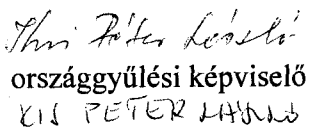 Kis Péter László
országgyűlési képviselő
KIS PÉTER LÁSZLÓ